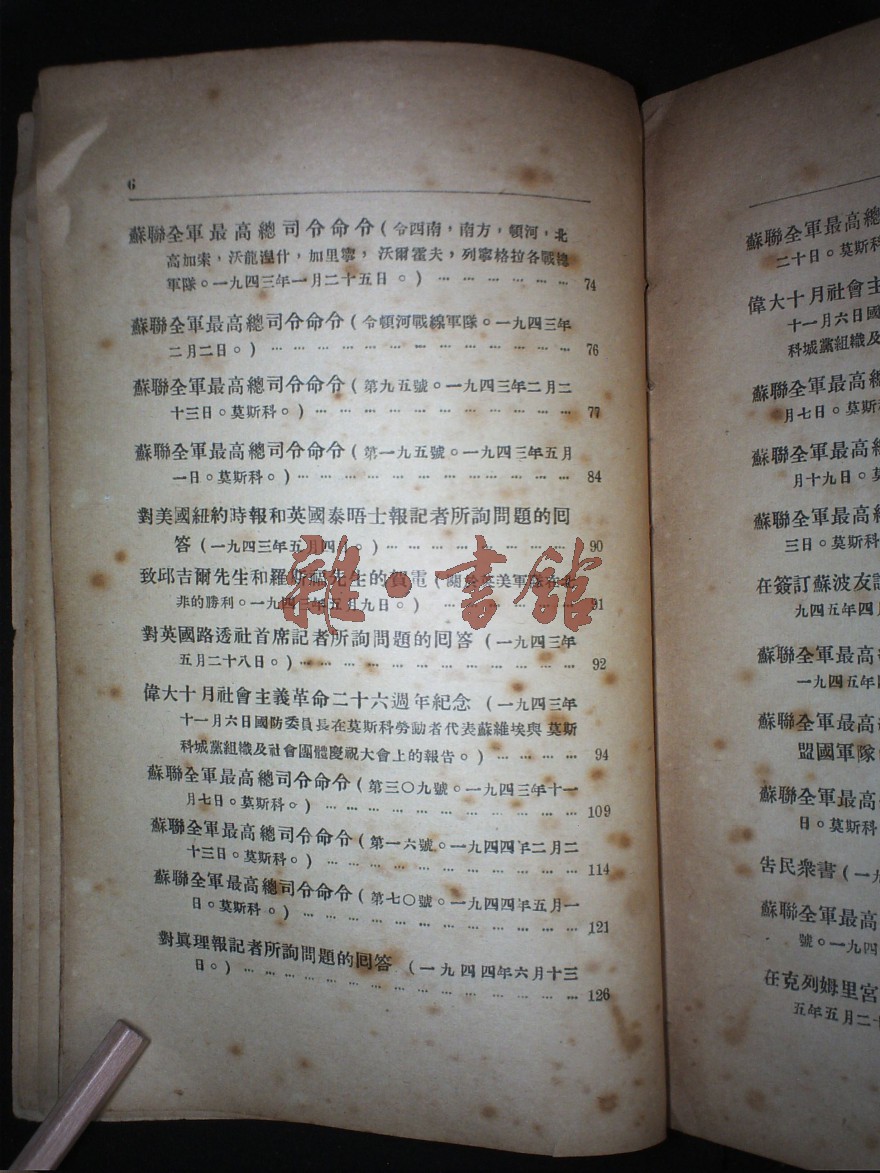 6
蘇聯全軍最高總司令命令(令西南,南方,頓河,北
高加索,沃龍湼什,加里寧,沃爾霍夫,列寧格拉各戰線
軍隊。一九四三年一月二十五日。)… 74
蘇聯全軍最高總司令命令(令頓河戰線軍隊。一九四三年
二月二日。)… 76
蘇聯全軍最高總司令命令(第九五號。一九四三年二月二
十三日。莫斯科。)… 77
蘇聯全軍最高總司令命令(第一九五號。一九四三年五月
一日。莫斯科。)… 84
對美國紐約時報和英國泰晤士報記者所詢問題的回
答(一九四三年五月四日。)… 90
致邱吉爾先生和羅斯福先生的賀電(關於英美軍隊在北
非的勝利。一九四三年五月九日。)… 91
對英國路透社首席記者所詢問題的回答(一九四三年
五月二十八日。)… 92
偉大十月社會主義革命二十六週年紀念(一九四三年
十一月六日國防委員長在莫斯科勞動者代表蘇維埃與莫斯
科城黨組織及社會團體慶祝大會上的報告。)… 94
蘇聯全軍最高總司令命令(第三〇九號。一九四三年十一
月七日。莫斯科。)… 109
蘇聯全軍最高總司令命令(第一六號。一九四四年二月二
十三日。莫斯科。)… 114
蘇聯全軍最高總司令命令(第七〇號。一九四四年五月一
日。莫斯科。)… 121
對眞理報記者所詢問題的回答(一九四四年六月十三
日。)… 126
雜·書館
蘇聯全軍最高總
二十日。莫斯科
偉大十月社會主
十一月六日國
科城黨組織及
蘇聯全軍最高
月七日。莫斯
蘇聯全軍最高
月十九日。
蘇聯全軍最高
三日。莫斯科
在簽訂蘇波友
九四五年四月
蘇聯全軍最高
一九四五年
蘇聯全軍最高
盟國軍隊
蘇聯全軍最高
日。莫斯科
告民衆書(一
蘇聯全軍最高
號。一九四
在克列姆里宮
五年五月二十